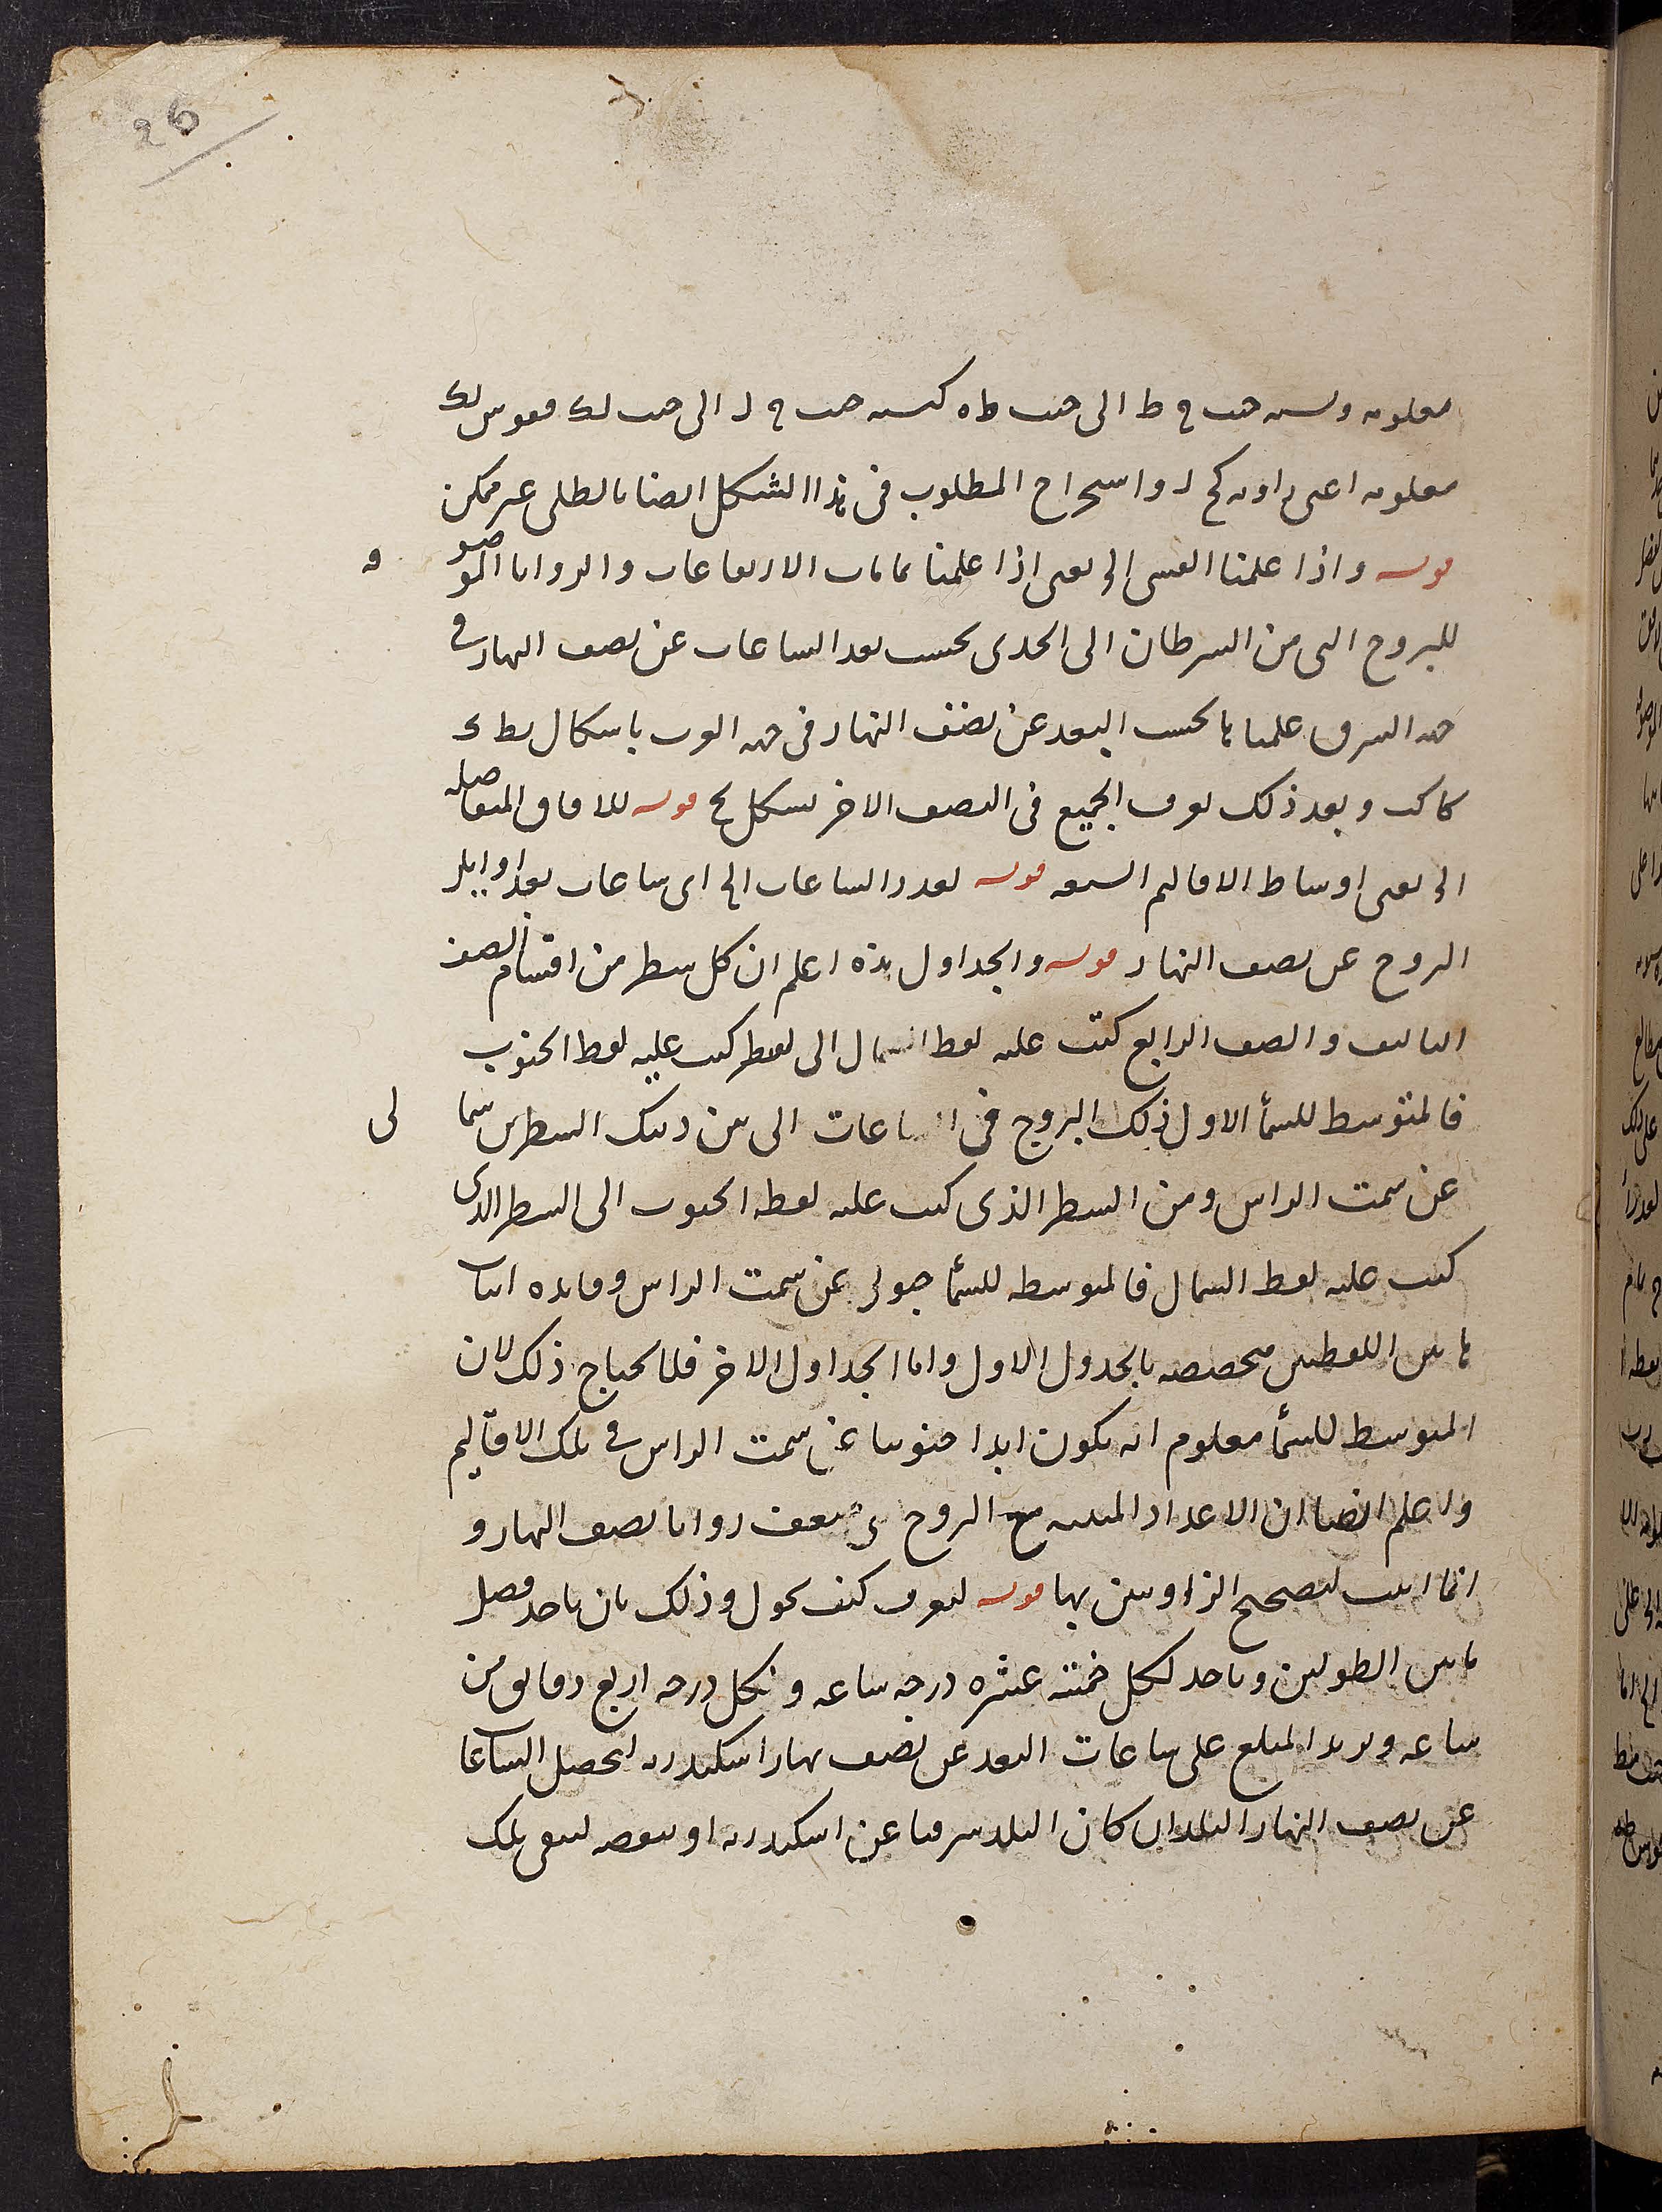 26
معلومه ونسبه جيب ح ط الى جيب ط ه كنسبه جيب ح ل الى جيب ل ك فقوس ل ك
معلومه اعنى زاويه ك ح ل واستخراج المطلوب فى هذا الشكل ايضا بالظلى غير ممكن
قوله واذا علمنا القسى الى يعنى اذا علمنا غايات الارتفاعات والزوايا الموضو فه
للبروج التى من السرطان الى الجدى بحسب بعد الساعات عن نصف النهار فى
جهه الشرق علمناها بحسب البعد عن نصف النهار فى جهه الغرب باشكال يط ك
كا كب وبعد ذلك نعرف الجميع فى النصف الاخر بشكل قوله للافاق المتفاصله
الى يعنى اوساط الاقاليم السبعه قوله بعدد الساعات الى اى ساعات بعد اوايل
البروج عن نصف النهار قوله والجداول هذه اعلم ان كل سطر من اقسام الصف
الثالث والصف الرابع كتب عليه لفظ الشمال الى لفظ كتب عليه لفظ الجنوب
فالمتوسط للسمأ الاول ذلك البروج فى الساعات التى بين ذينك السطرين شما لى
عن سمت الراس ومن السطر الذى كتب عليه لفظه الجنوب الى السطر الذى
كتب عليه لفظ الشمال فالمتوسطه للسمأ جنوبى عن سمت الراس وفايده اثبات
هاتين اللفظتين مخصصه بالجدول الاول واما الجداول الاخر فلا يحتاج ذلك لان
المتوسط للسمأ معلوم انه يكون ابدا جنوبيا عن سمت الراس فى تلك الاقاليم
واعلم ايضا ان الاعداد المثبته مع البروج ضعف زوايا نصف النهار و
انما اثبت لتصحيح الزاويتين بها قوله لنعرف كيف يحول وذلك بان ياخذ فضل
ما بين الطولين وياخذ لكل خمسه عشره درجه ساعه ولكل درجه اربع دقايق من
ساعه ويزيد المبلغ على ساعات البعد عن نصف نهار اسكندريه ليحصل الساعا
عن نصف النهار البلد ان كان البلد شرقيا عن اسكندريه او ينقصه ليبقى تلك